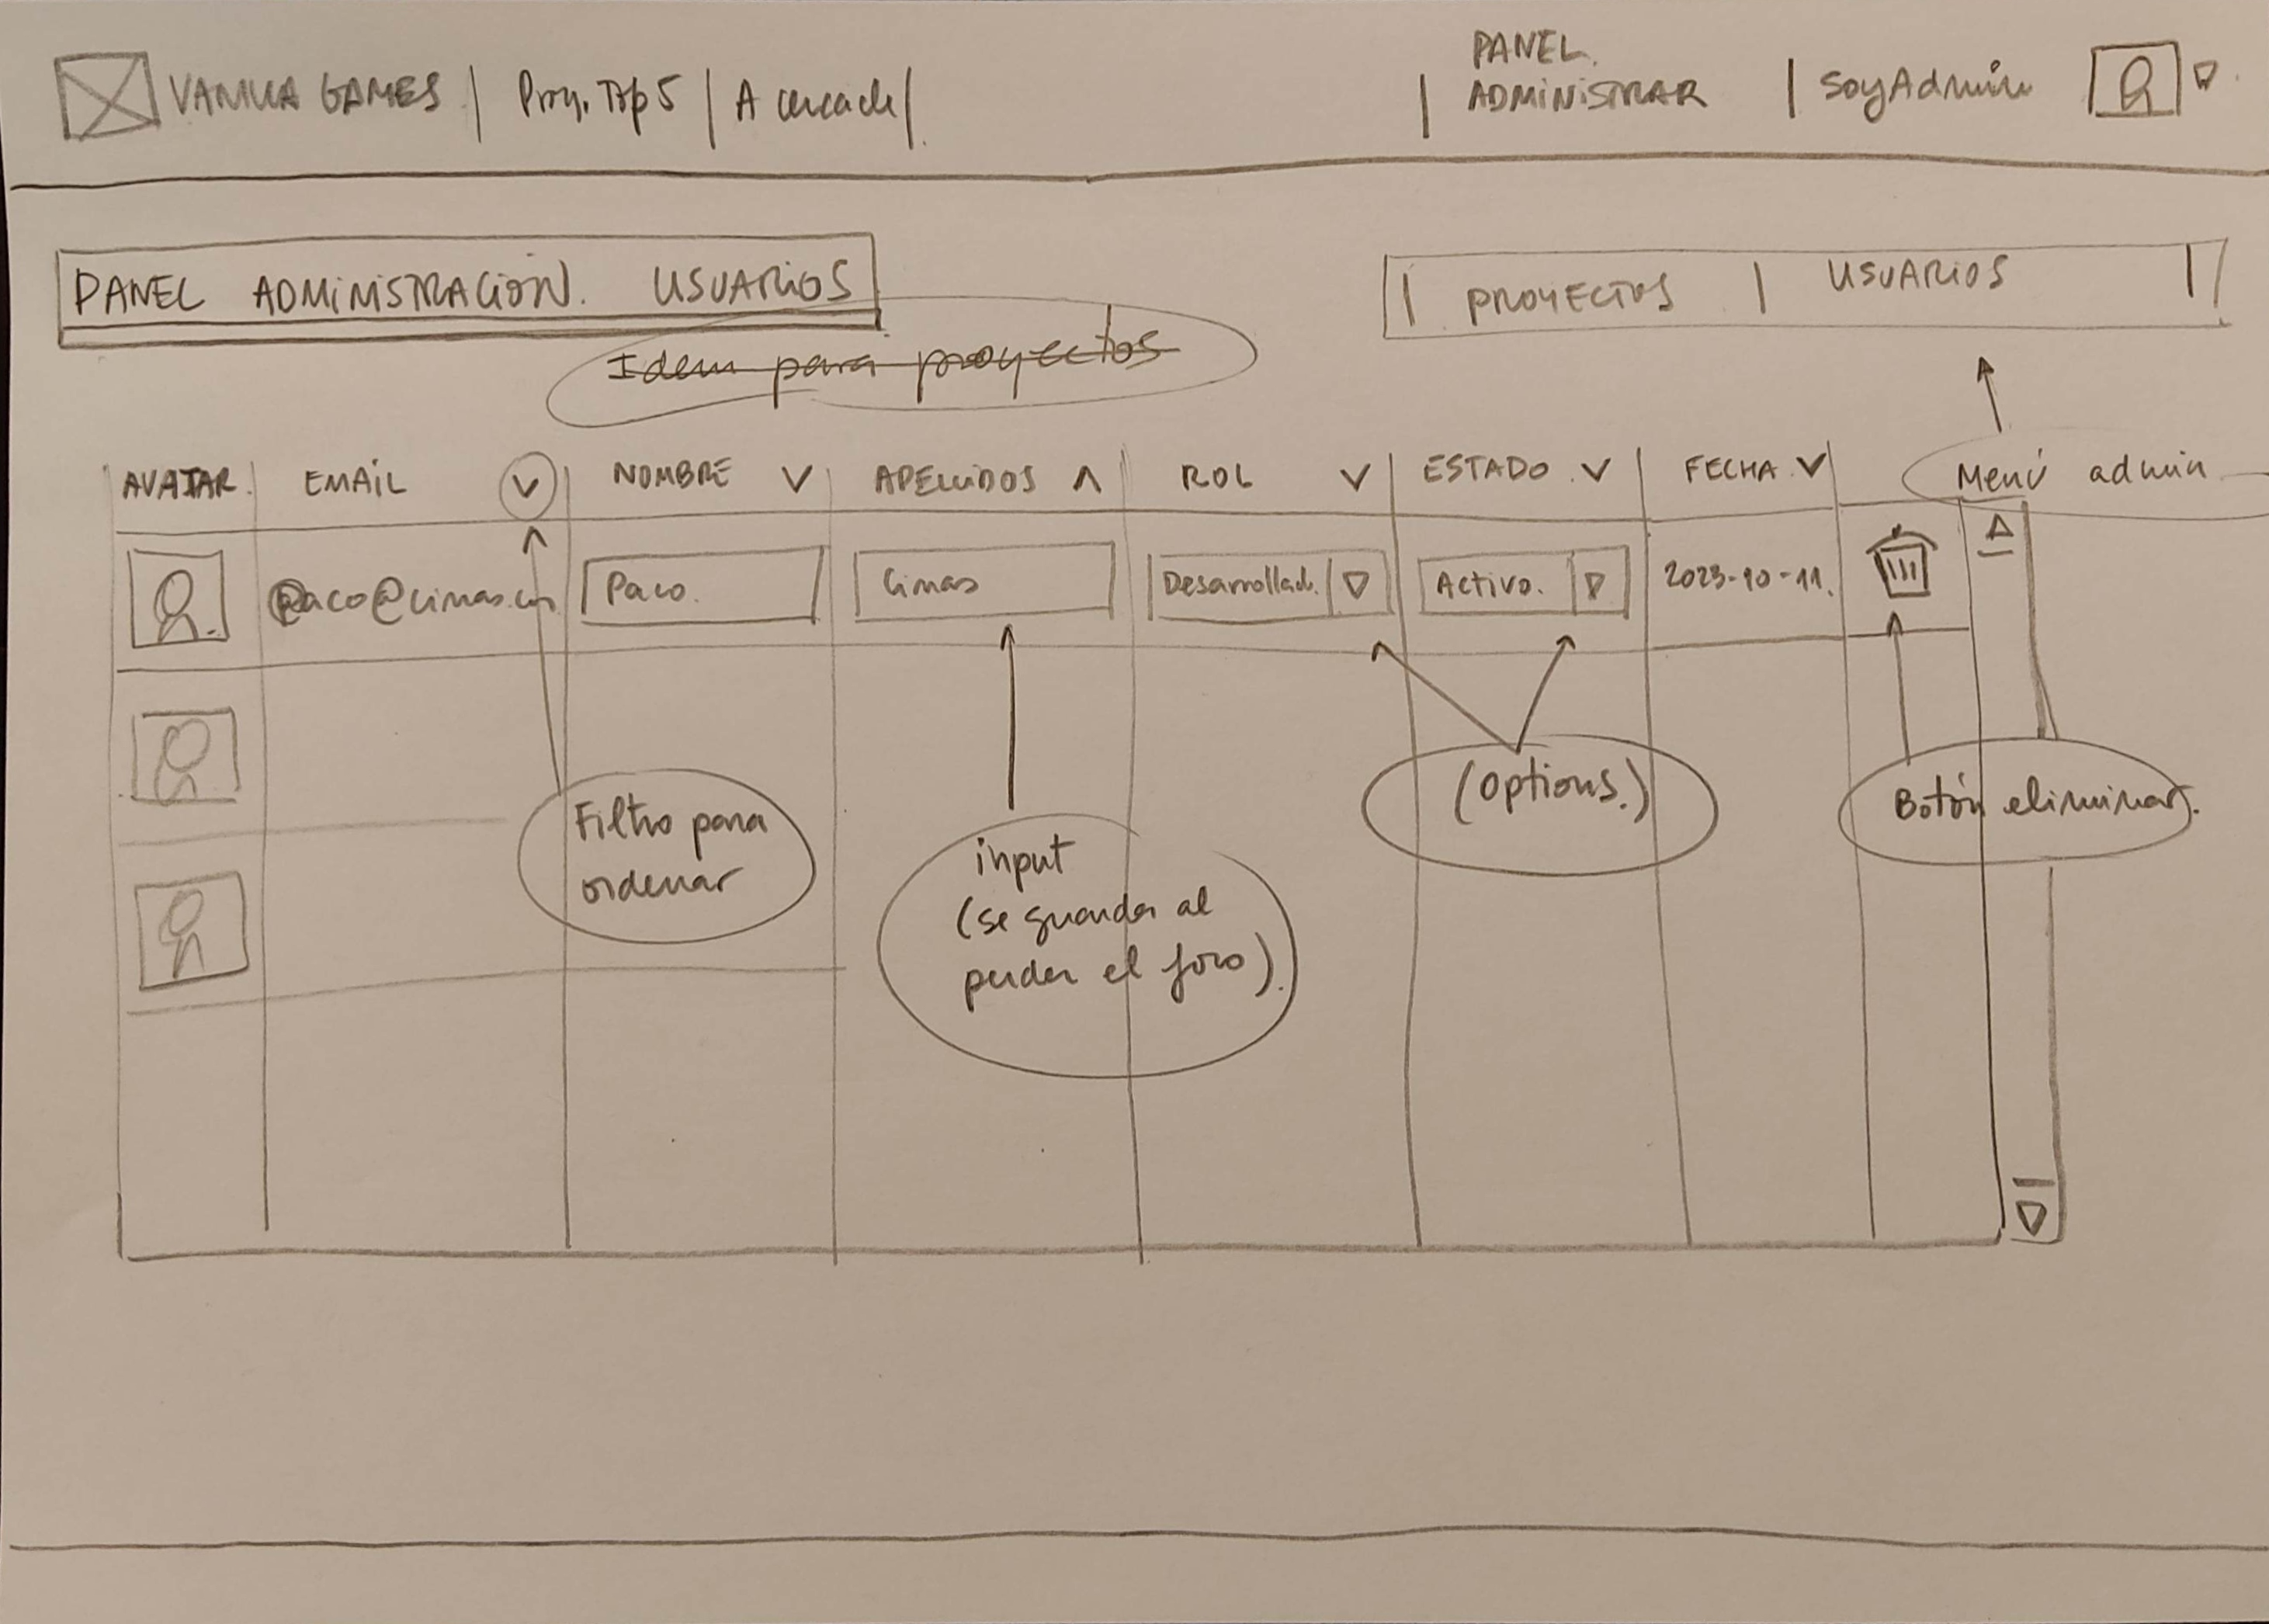 VANILLA GAMES | Proy. Top 5 | Acerca de |
PANEL.
| ADMINISTRAR | SoyAdmin
PANEL ADMINISTRACIÓN. USUARIOS
| PROYECTOS | USUARIOS |
Idem para proyectos
Menú admin
AVATAR EMAIL NOMBRE APELLIDOS ROL ESTADO FECHA
paco@cimas.com Paco. Cimas Desarrollad. Activo. 2023-10-11.
Filtro para
ordenar
input
(se guarda al
perder el foco).
(options.)
Botón eliminar.